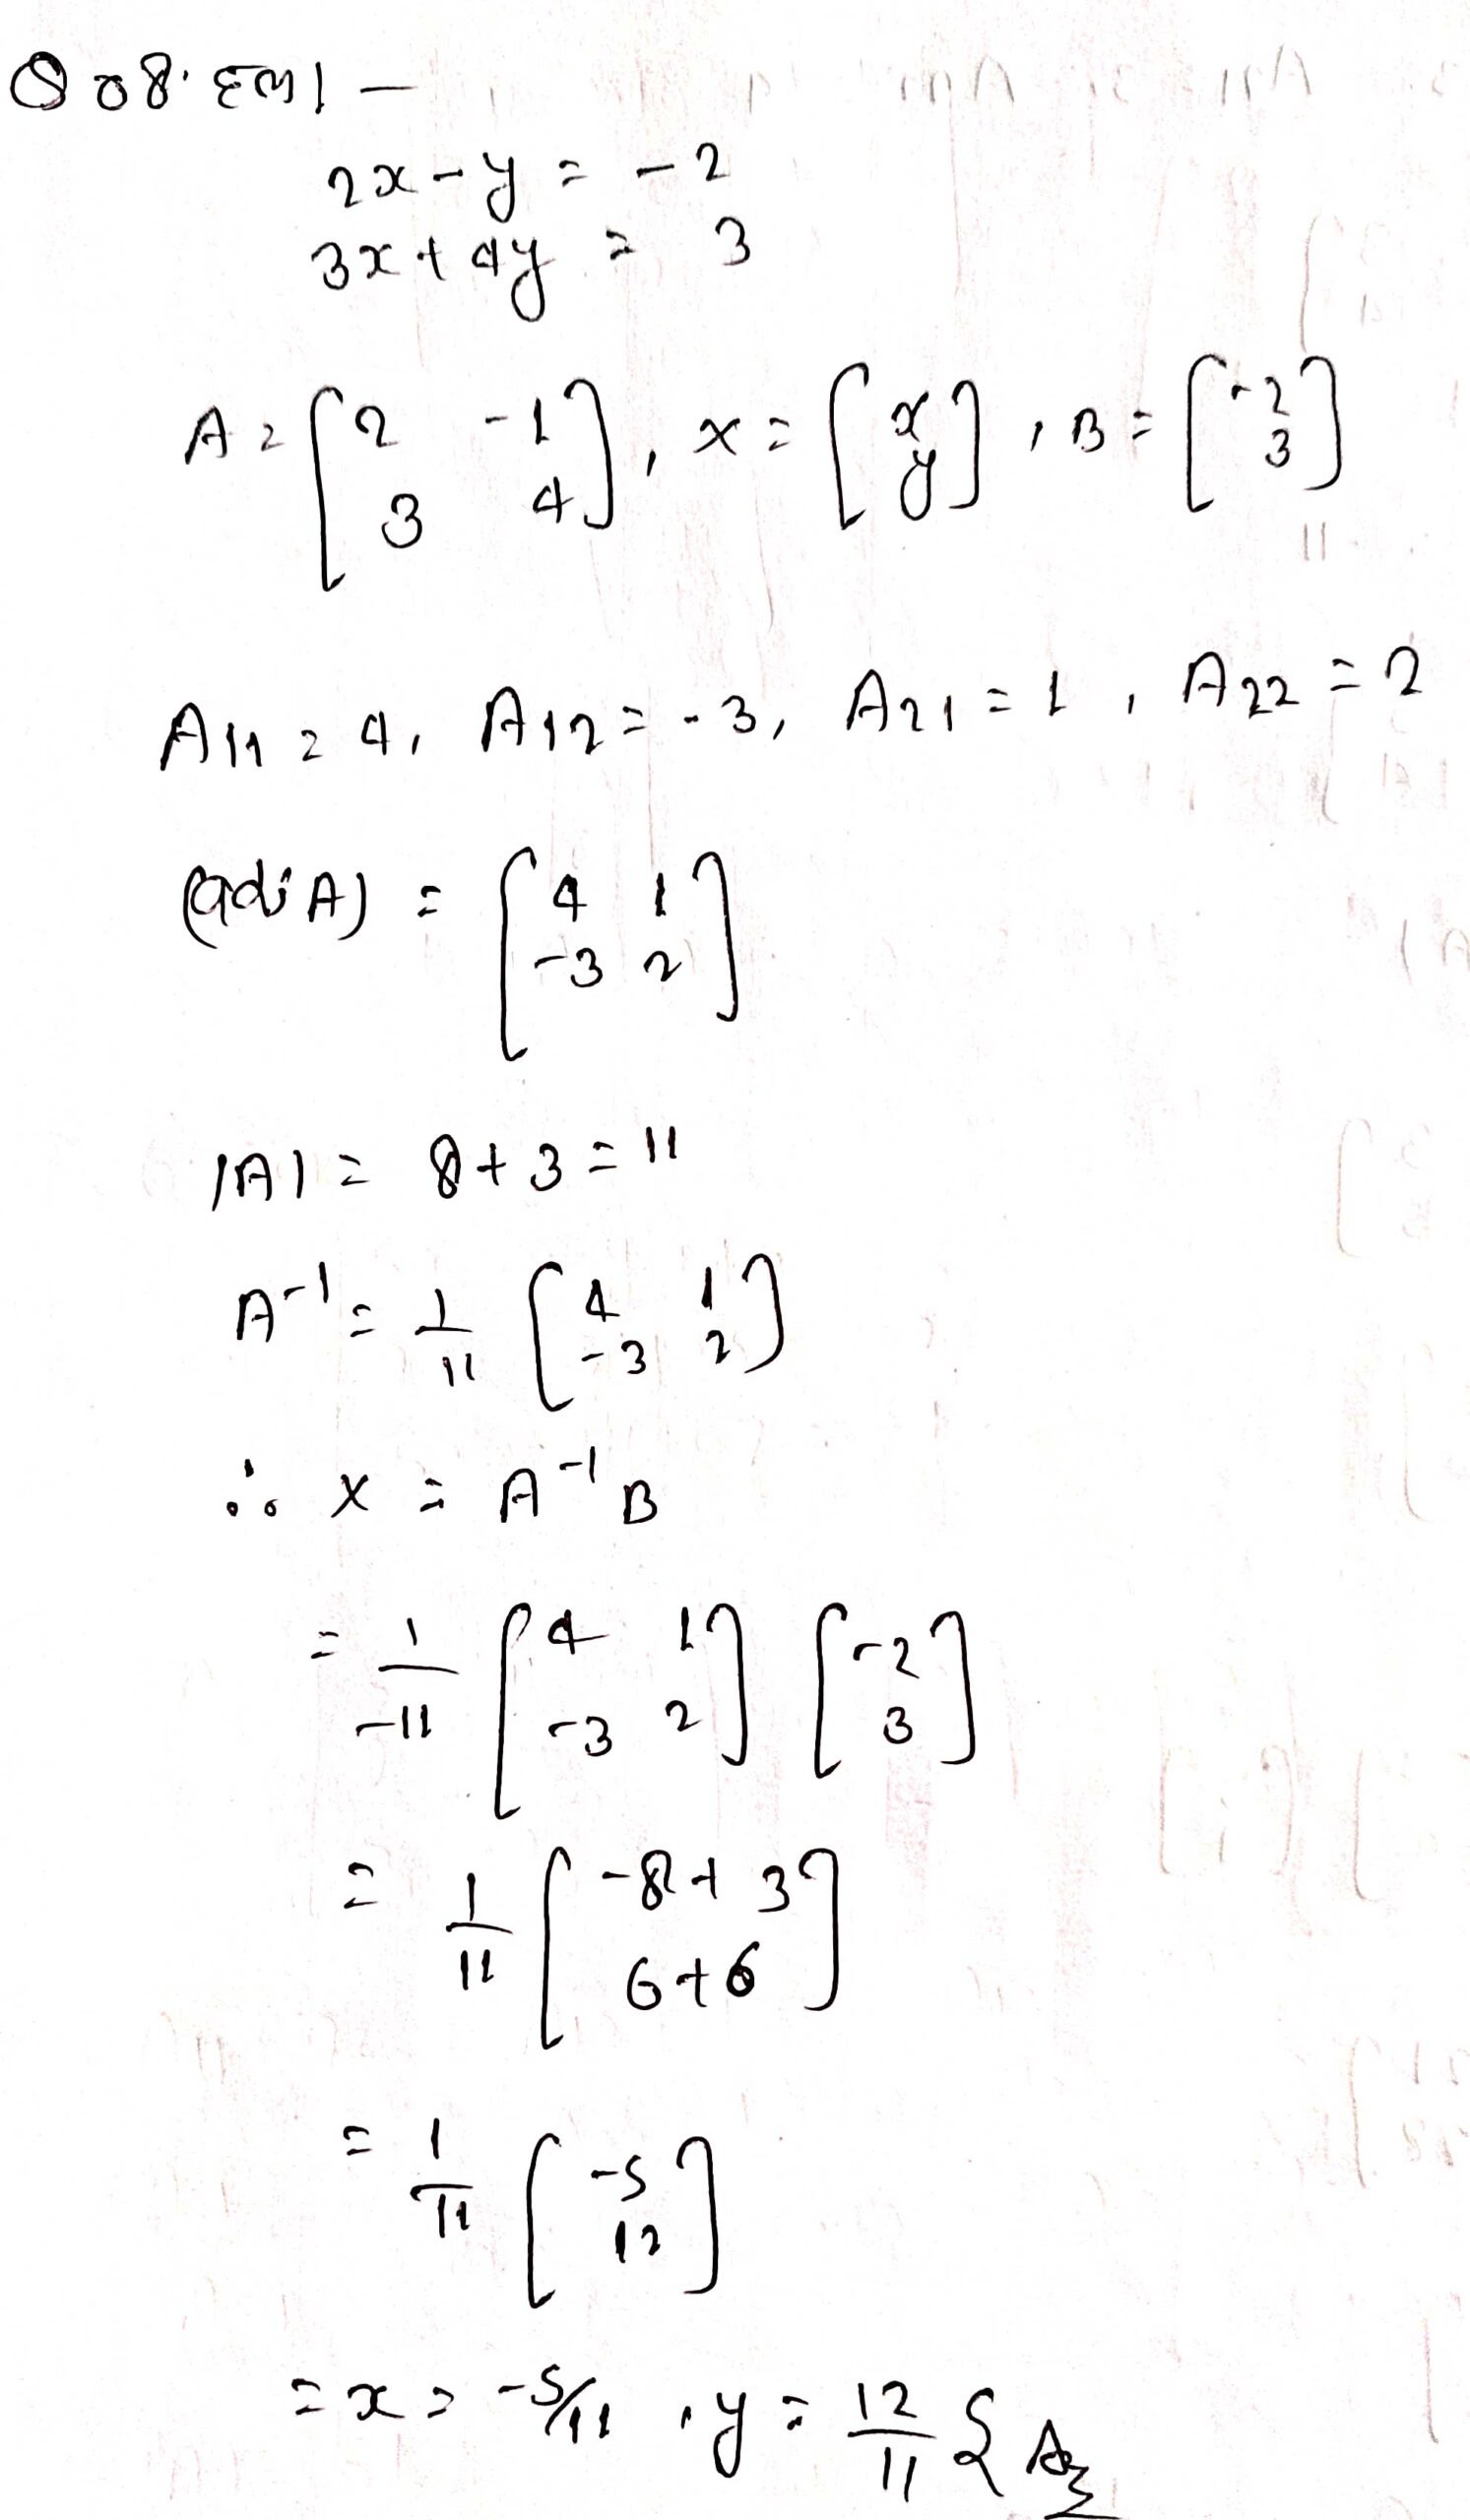 Q 08. हल। —
2x - y = -2
3x + 4y = 3
A = [2 -1], x = [x], B = [-2]
[3 4] [y] [3]
A11 = 4, A12 = -3, A21 = 1, A22 = 2
(adj A) = [4 1]
[-3 2]
|A| = 8 + 3 = 11
A⁻¹ = 1/11 [4 1]
[-3 2]
∴ x = A⁻¹ B
= 1/-11 [4 1] [-2]
[-3 2] [3]
= 1/11 [-8 + 3]
[6 + 6]
= 1/11 [-5]
[12]
= x = -5/11, y = 12/11